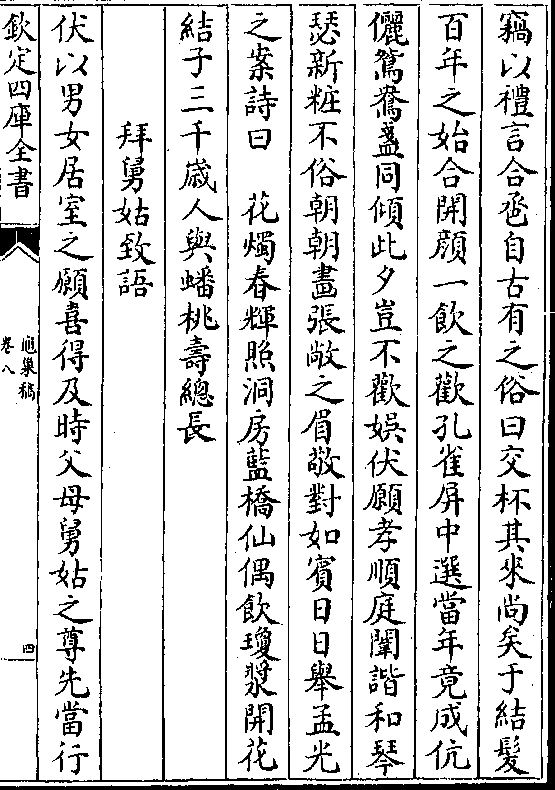 竊以禮言合卺自古有之俗曰交杯其來尚矣于結髮
百年之始合開顔一飲之歡孔雀屏中選當年竟成伉
儷鴛鴦盞同傾此夕豈不歡娛伏願孝順庭闈諧和琴
瑟新粧不俗朝朝畫張敞之眉敬對如賓日日舉孟光
之案詩曰　花燭春輝照洞房藍橋仙偶飲瓊漿開花
結子三千歳人與蟠桃壽總長
拜舅姑致語
伏以男女居室之願喜得及時父母舅姑之尊先當行
欽定四庫全書
龜巢稿
卷八
四